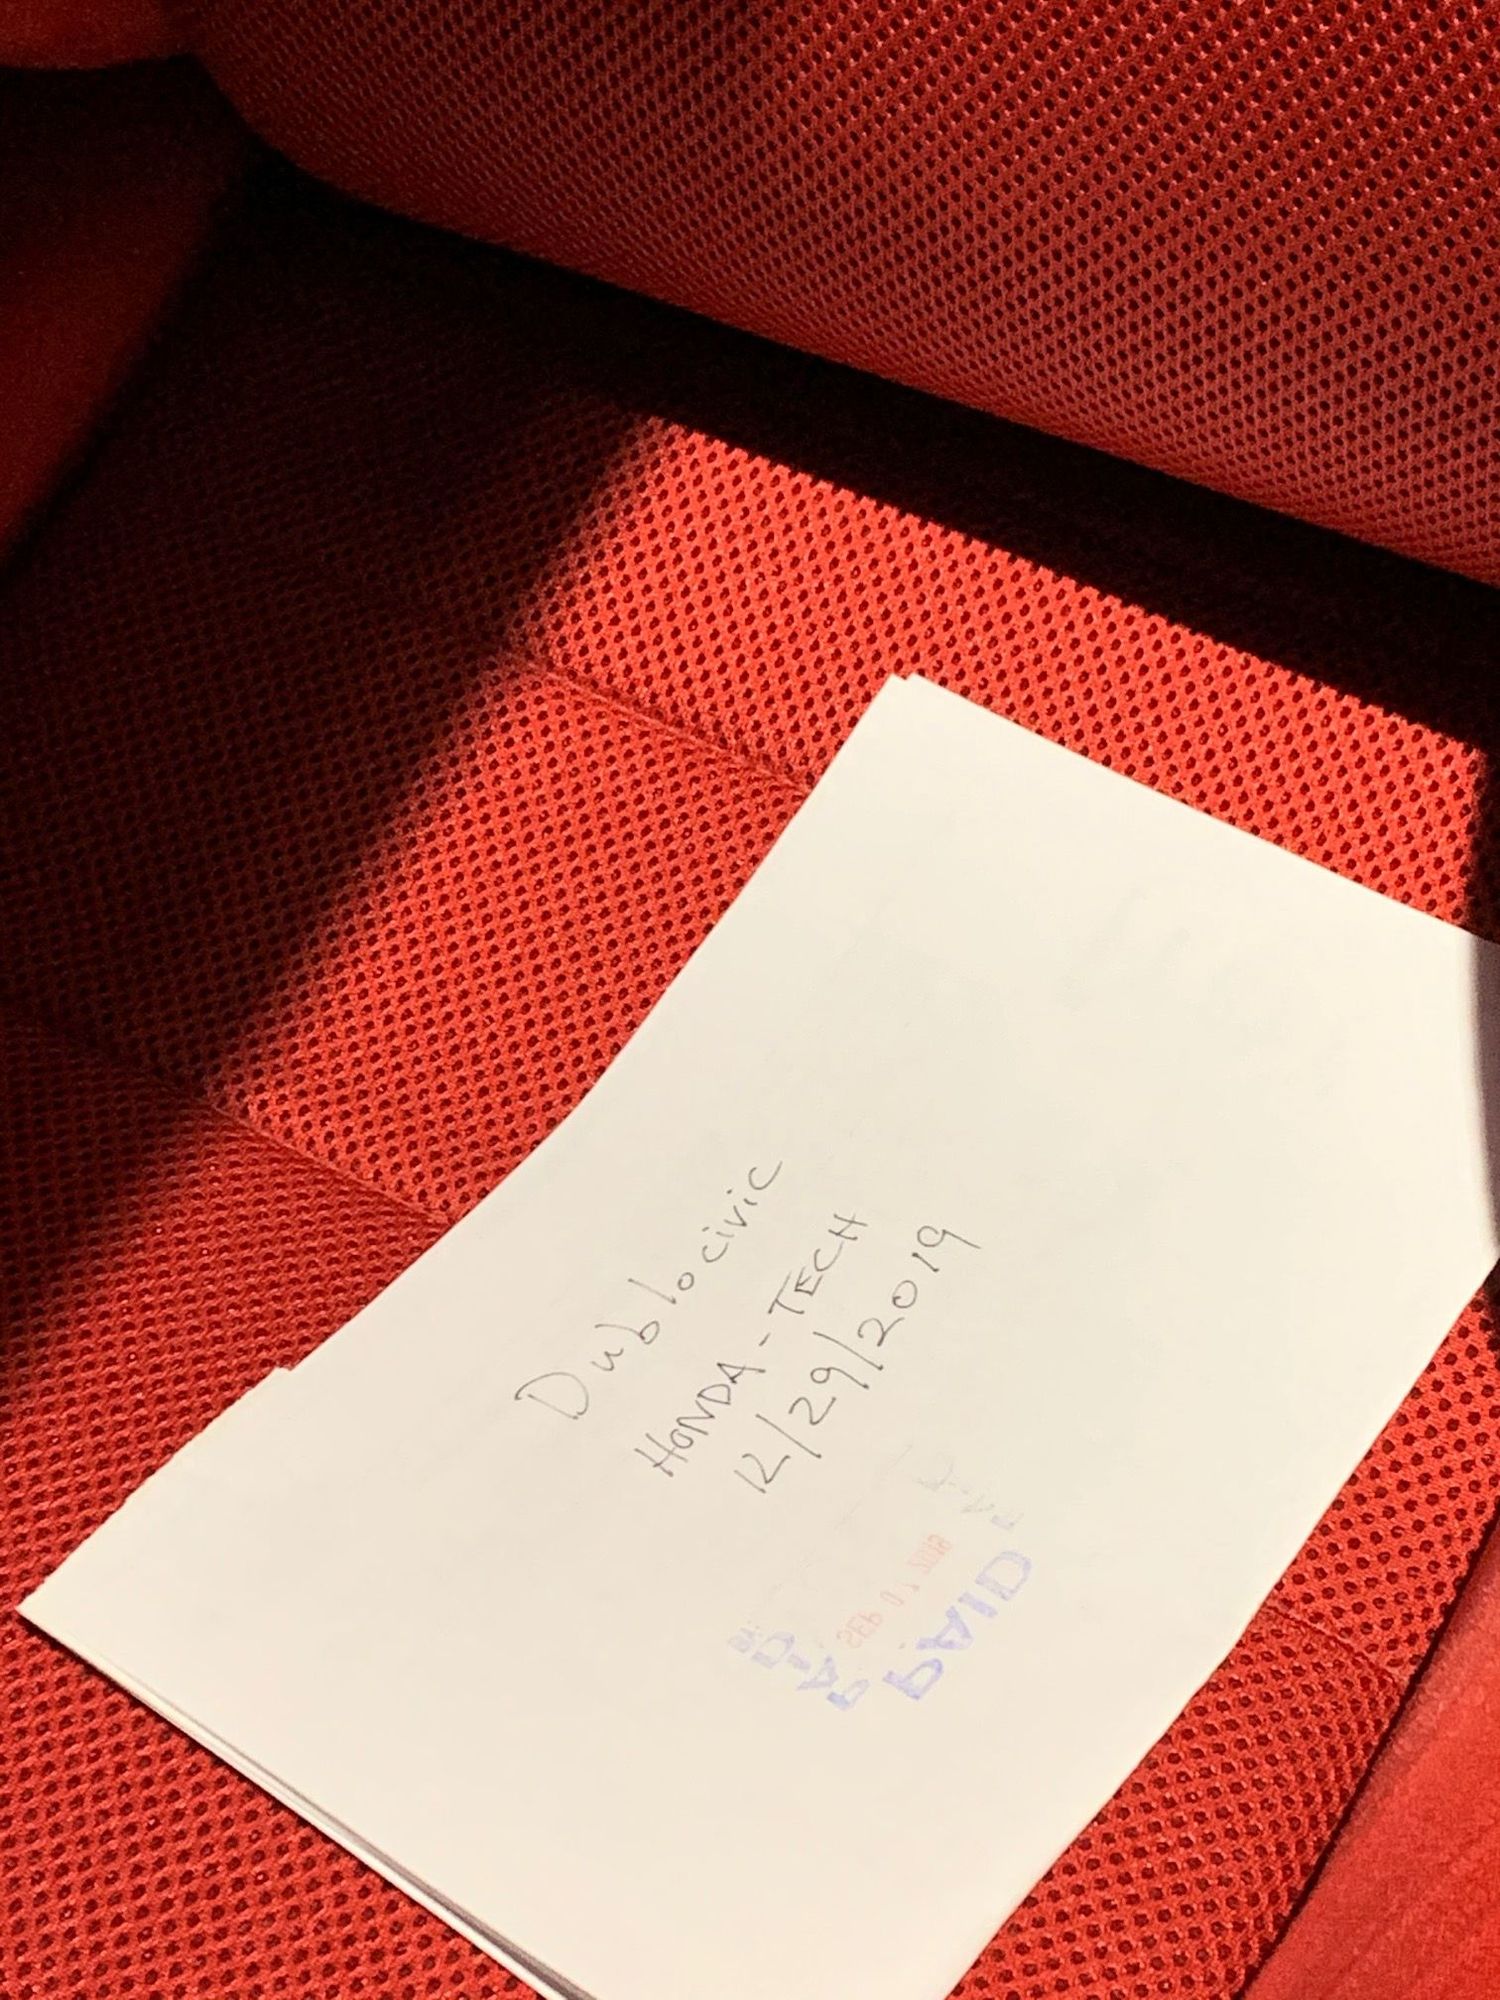 Dublocivic
HONDA-TECH
12/29/2019
PAID
SEP 07 2019